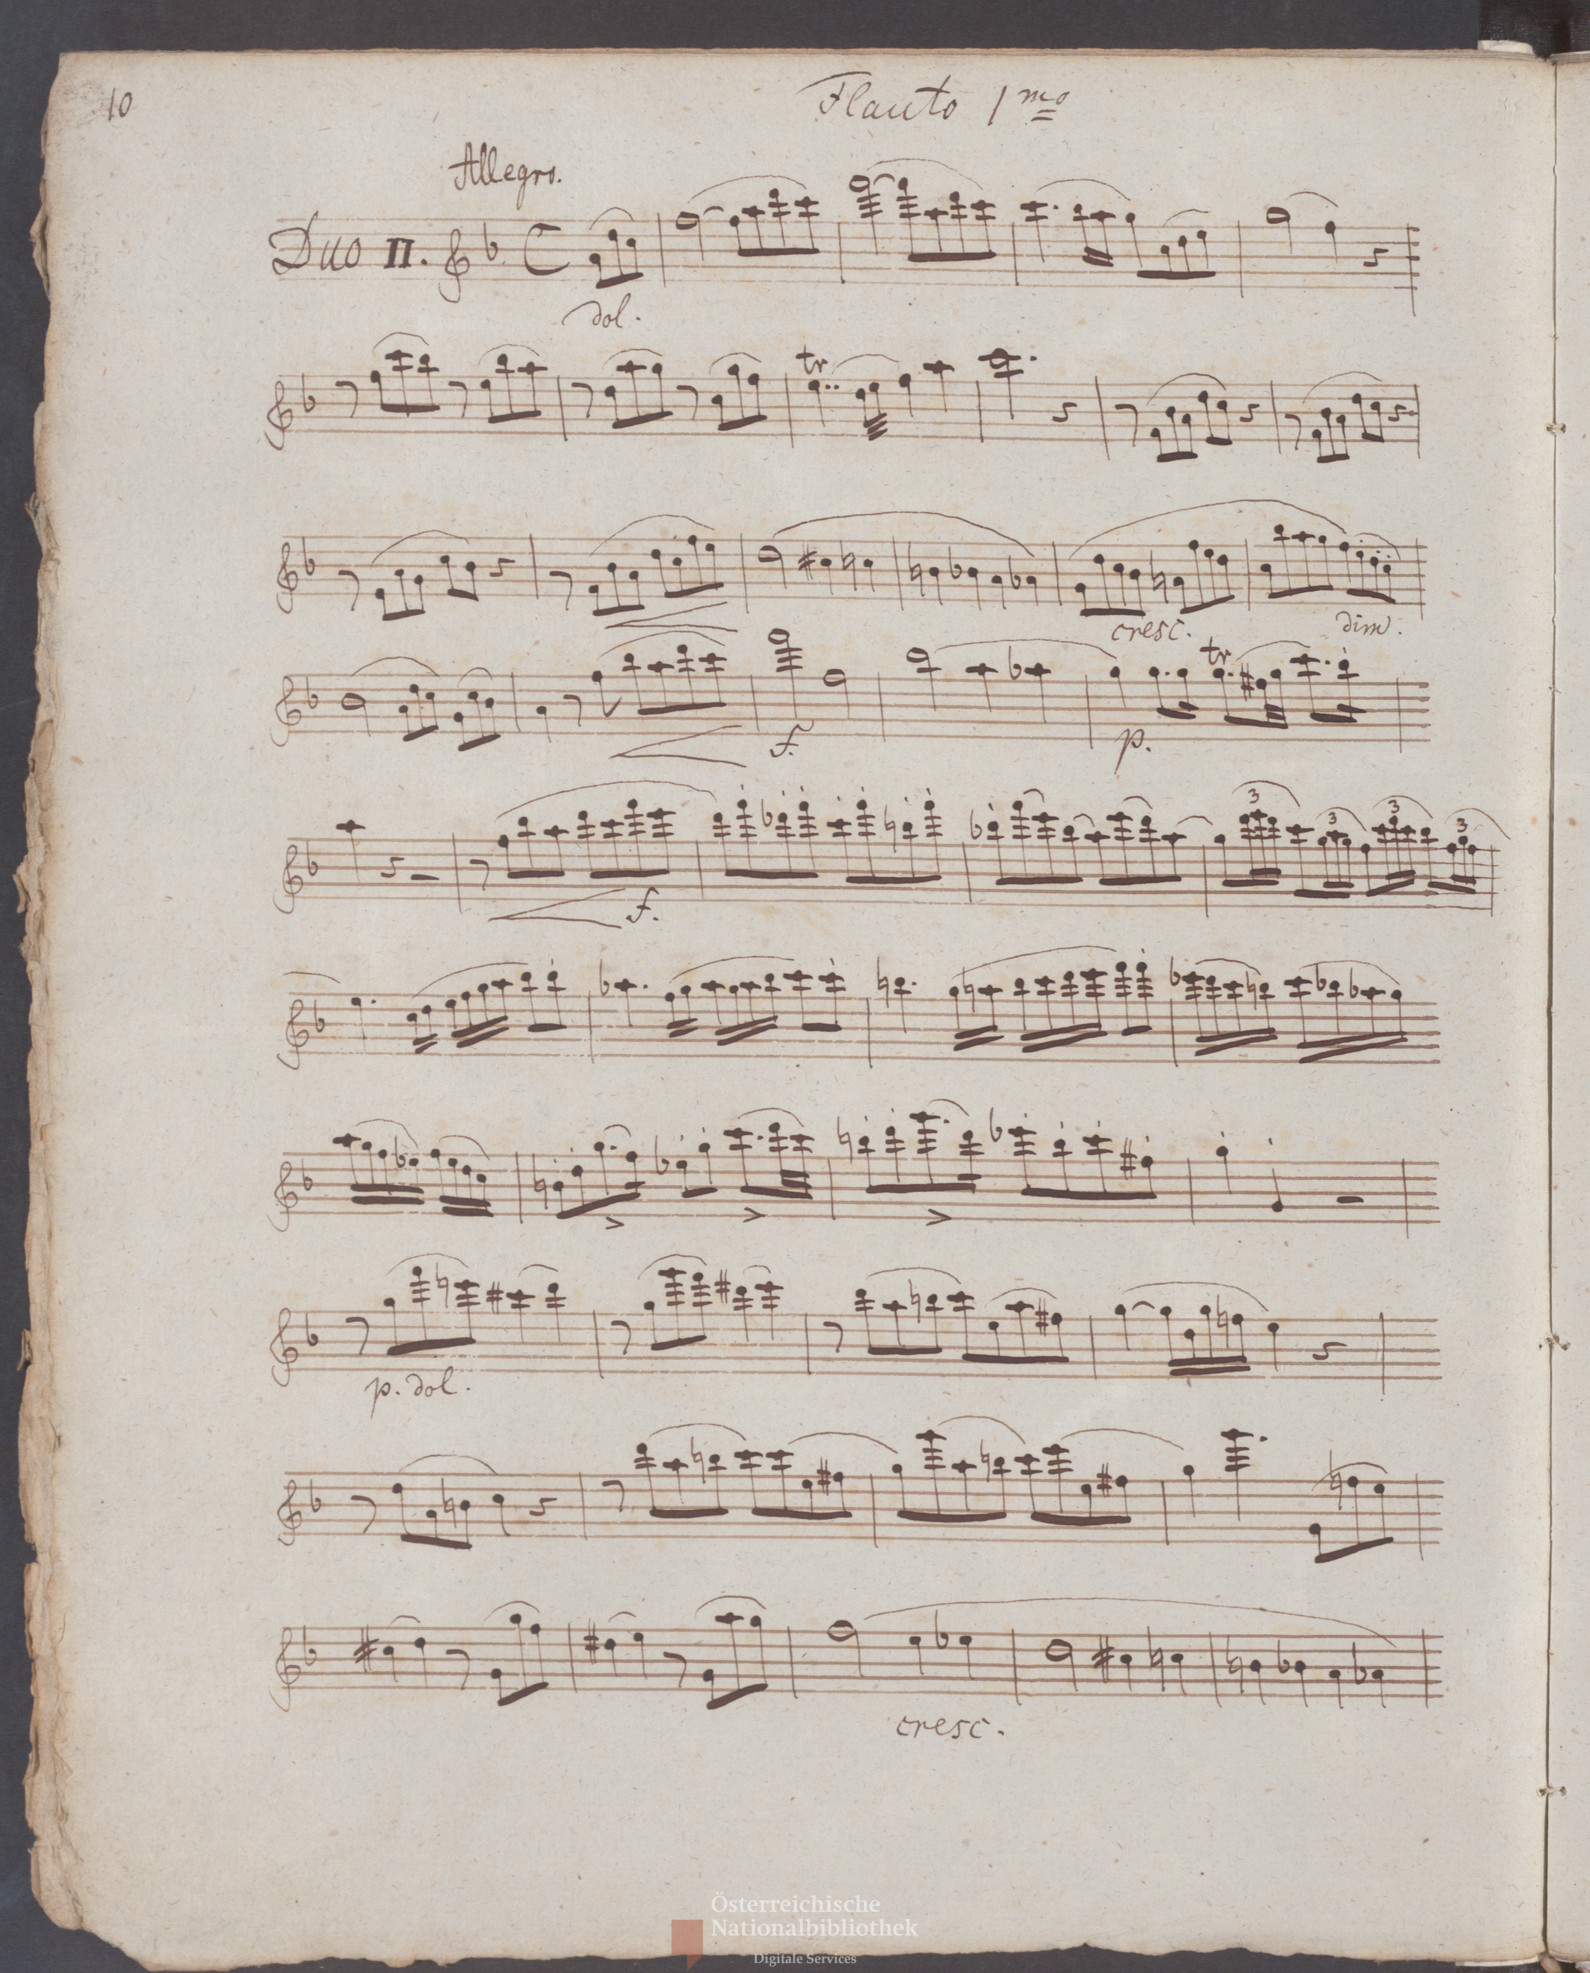 10
Flauto 1mo
Allegro.
Duo II.
dol.
tr
cresc. dim.
tr
f. p.
3 3 3 3
f.
p. dol.
cresc.
Österreichische
Nationalbibliothek
Digitale Services